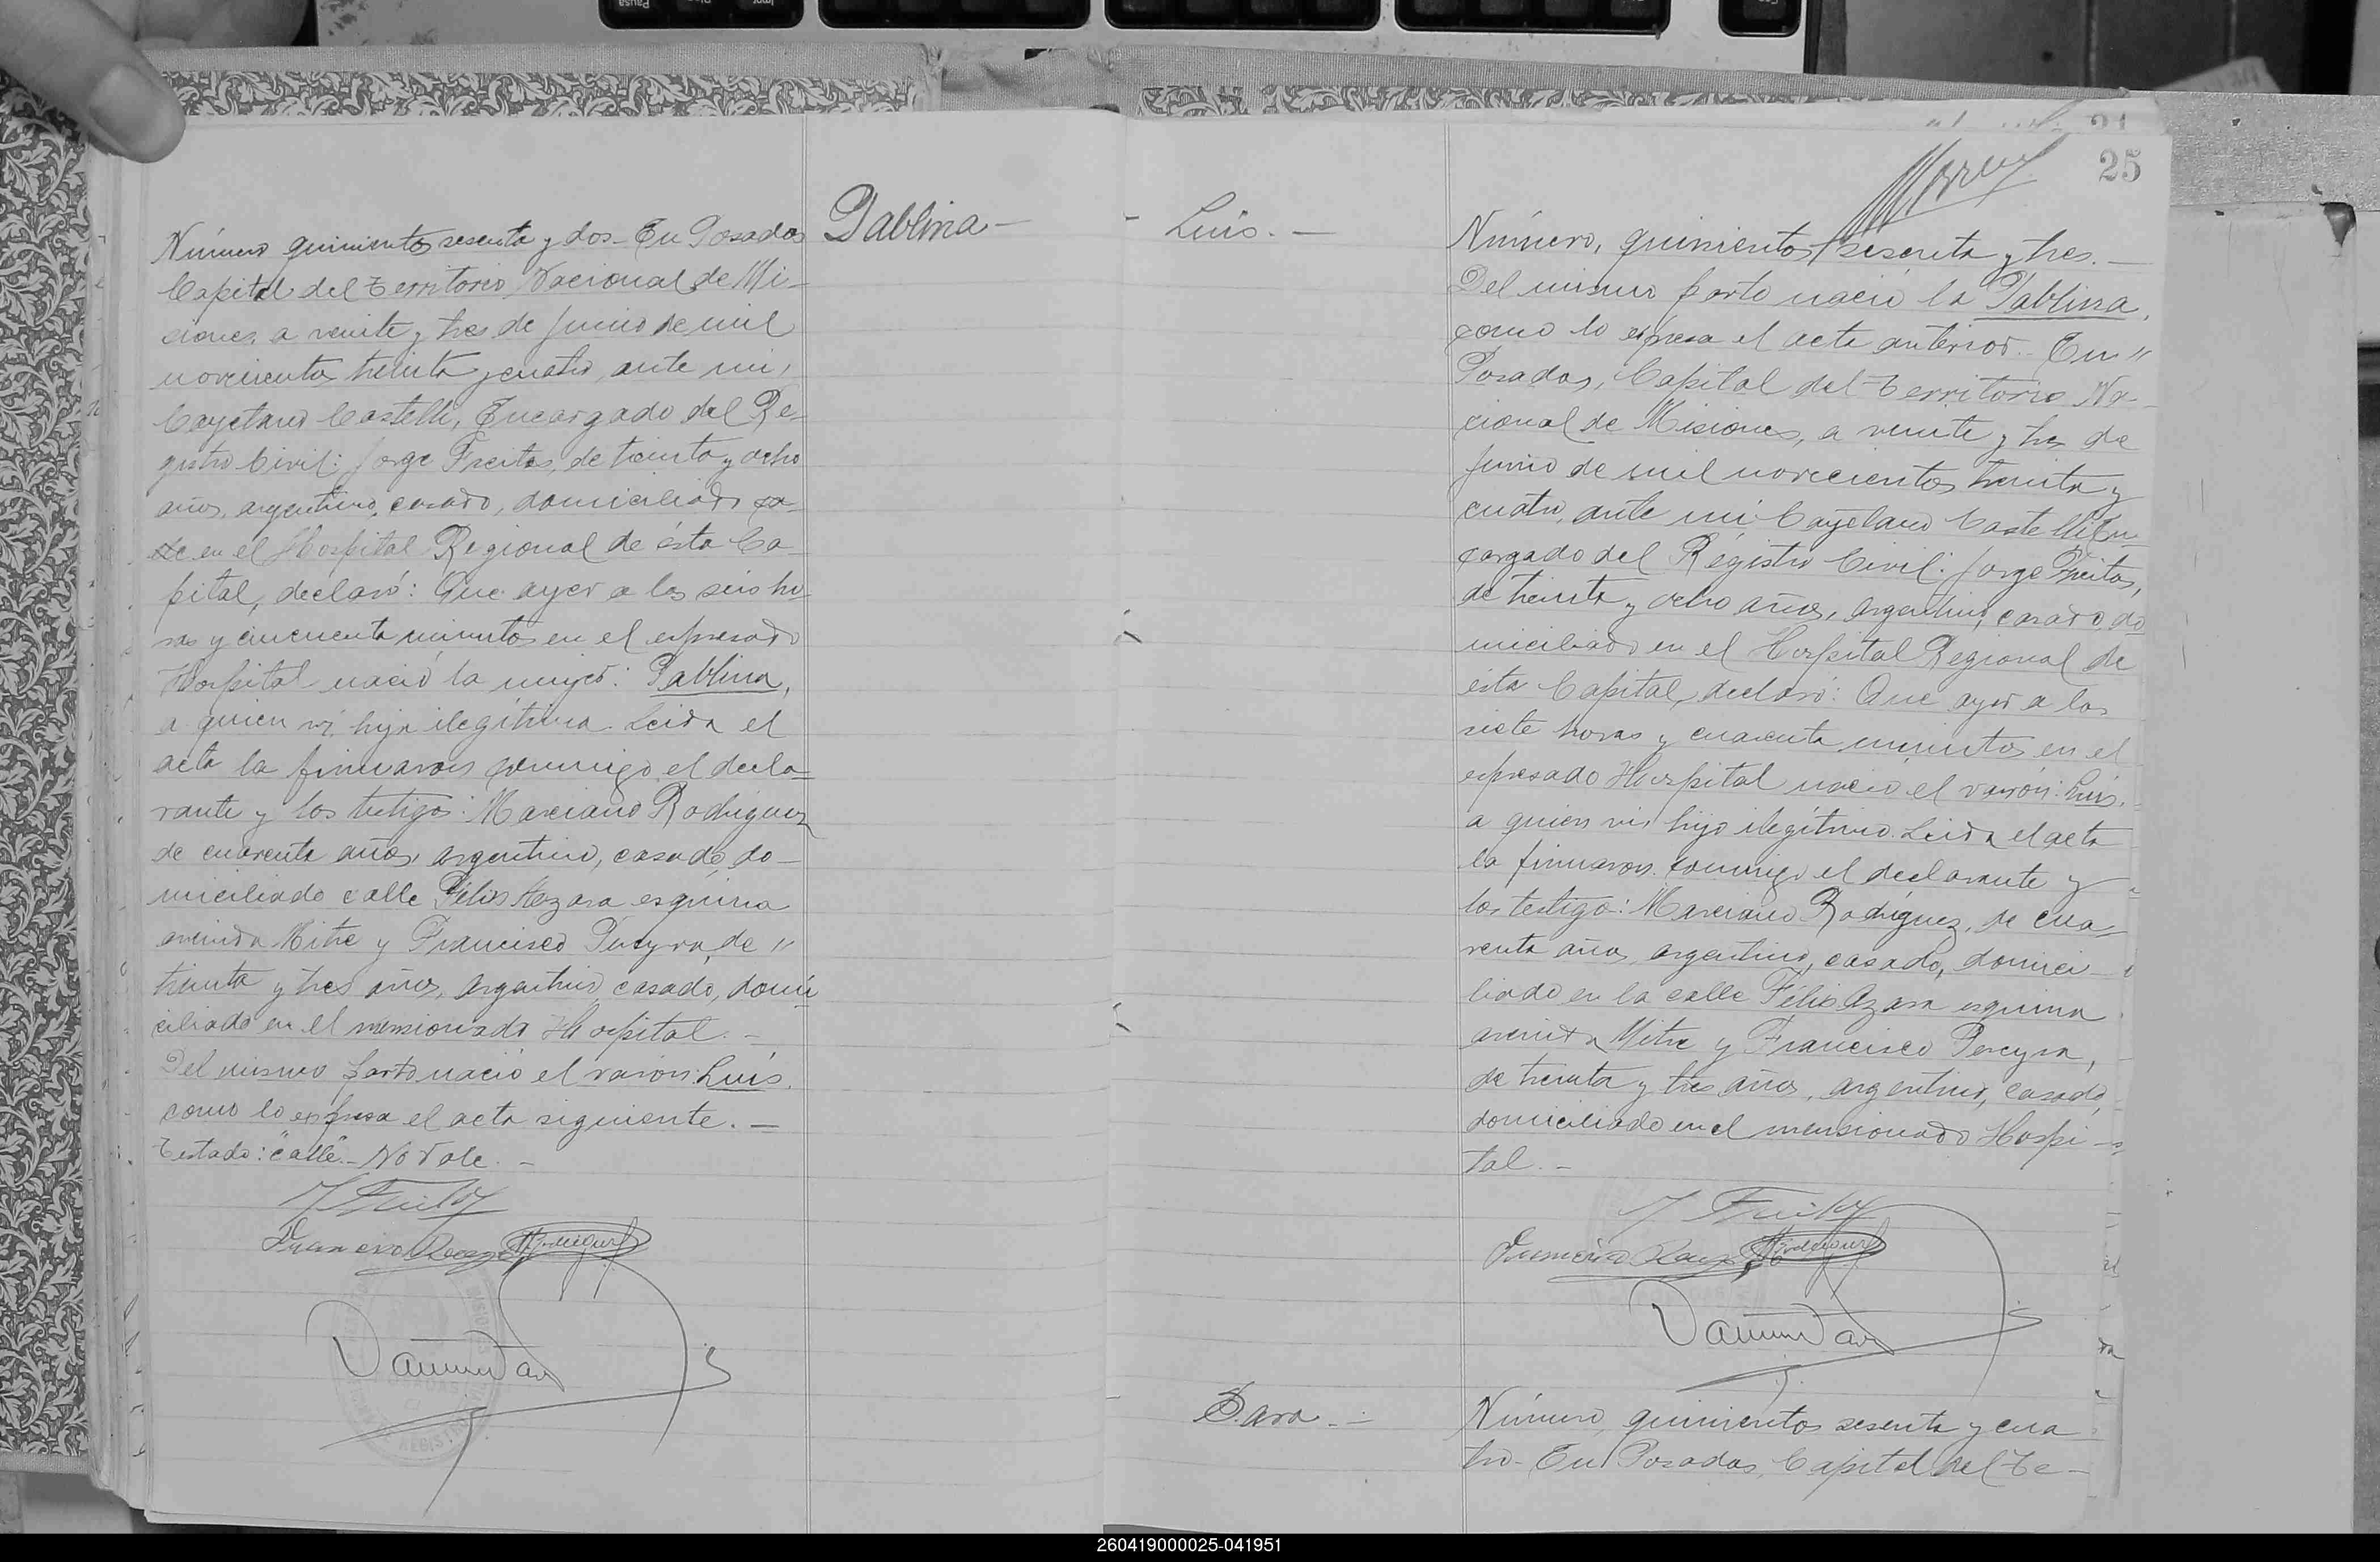 Pablina -
Número quinientos sesenta y dos - En Posadas
Capital del Territorio Nacional de Mi-
siones, a veinte y tres de Junio de mil
novecientos treinta y cuatro, ante mi,
Cayetano Castelli, Encargado del Re-
gistro Civil: Jorge Freitas, de treinta y ocho
años, argentino, casado, domiciliado ca-
lle en el Hospital Regional de ésta Ca-
pital, declaró: Que ayer a las seis ho-
ras y cincuenta minutos en el espresado
Hospital nació la mujer: Pablina,
a quien ví, hija ilegítima. Leida el
acta la firmaron conmigo el decla-
rante y los testigos: Marciano Rodriguez
de cuarenta años, argentino, casado, do-
miciliado calle Félix Azara esquina
avenida Mitre y Francisco Pereyra, de "
treinta y tres años, argentino, casado, domi
ciliado en el mensionado Hospital. -
Del mismo parto nació el varón: Luís.
como lo espresa el acta siguiente. -
Testado: "calle" - No Vale. -
J Freitas
25
- Luís. -
Número, quinientos sesenta y tres. -
Del mismo parto nació la Pablina,
como lo espresa el acta anterior. En "
Posadas, Capital del Territorio Na-
cional de Misiones, a veinte y tres de
Junio de mil novecientos treinta y
cuatro, ante mi Cayetano Castelli En-
cargado del Registro Civil: Jorge Freitas,
de treinta y ocho años, argentino, casado, do
miciliado en el Hospital Regional de
ésta Capital, declaró: Que ayer a las
siete horas y cuarenta minutos en el
espresado Hospital nació el varón: Luís.
a quien ví, hijo ilegítimo. Leida el acta
la firmaron conmigo el declarante y
los testigos: Marciano Rodríguez, de cua-
renta años, argentino, casado, domici-
liado en la calle Félix Azara esquina
avenida Mitre y Francisco Pereyra,
de treinta y tres años, argentino, casado,
domiciliado en el mensionado Hospi-
tal. -
J Freitas
Sara. -
Número, quinientos sesenta y cua
tro - En Posadas, Capital del Te-
260419000025-041951